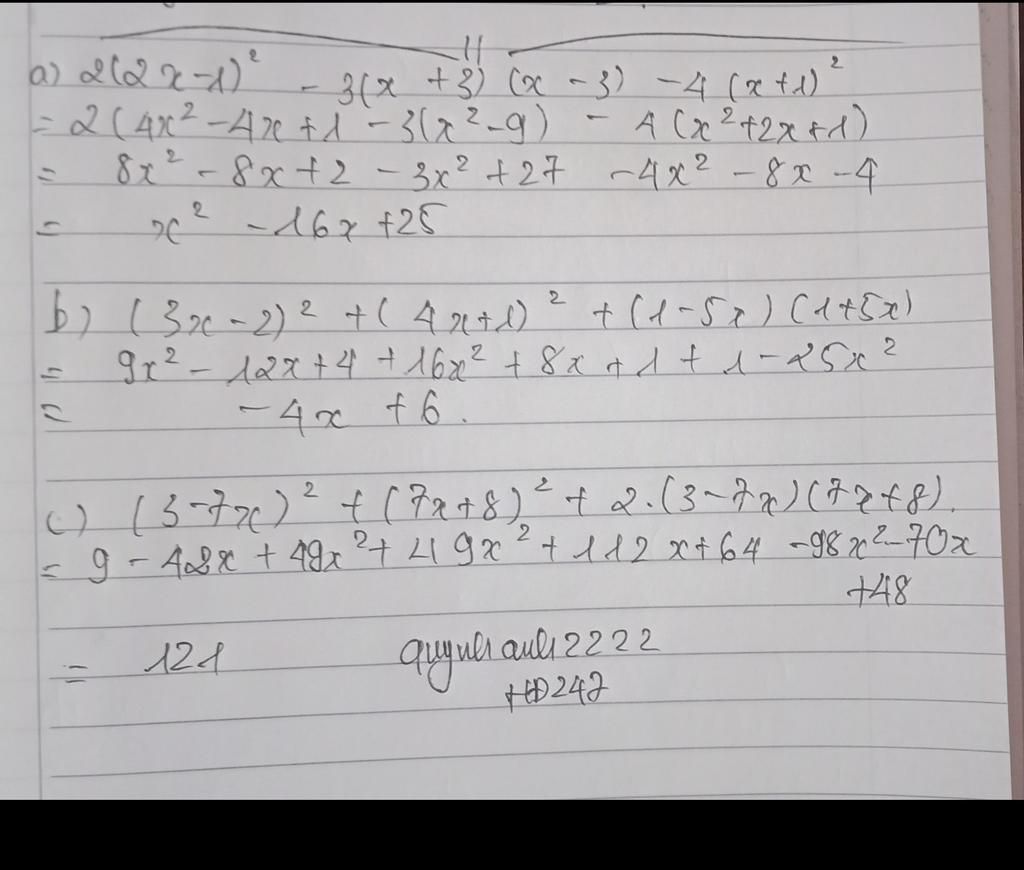 a) 2(2x-1)² - 3(x+3)(x-3) - 4(x+1)²
= 2(4x²-4x+1 - 3(x²-9) - 4(x²+2x+1)
= 8x² - 8x + 2 - 3x² + 27 - 4x² - 8x - 4
= x² - 16x + 25
b) (3x-2)² + (4x+1)² + (1-5x)(1+5x)
= 9x² - 12x + 4 + 16x² + 8x + 1 + 1 - 25x²
= -4x + 6.
c) (3-7x)² + (7x+8)² + 2.(3-7x)(7x+8).
= 9 - 42x + 49x² + 49x² + 112x + 64 - 98x² - 70x
+48
= 121 quynhanh2222
HD247